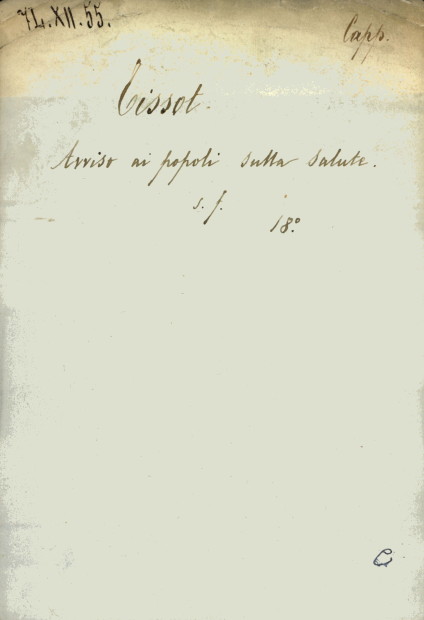 7L.XII.55.
Capp.
Tissot.
Avviso ai popoli sulla salute.
s. f.
18.º
C